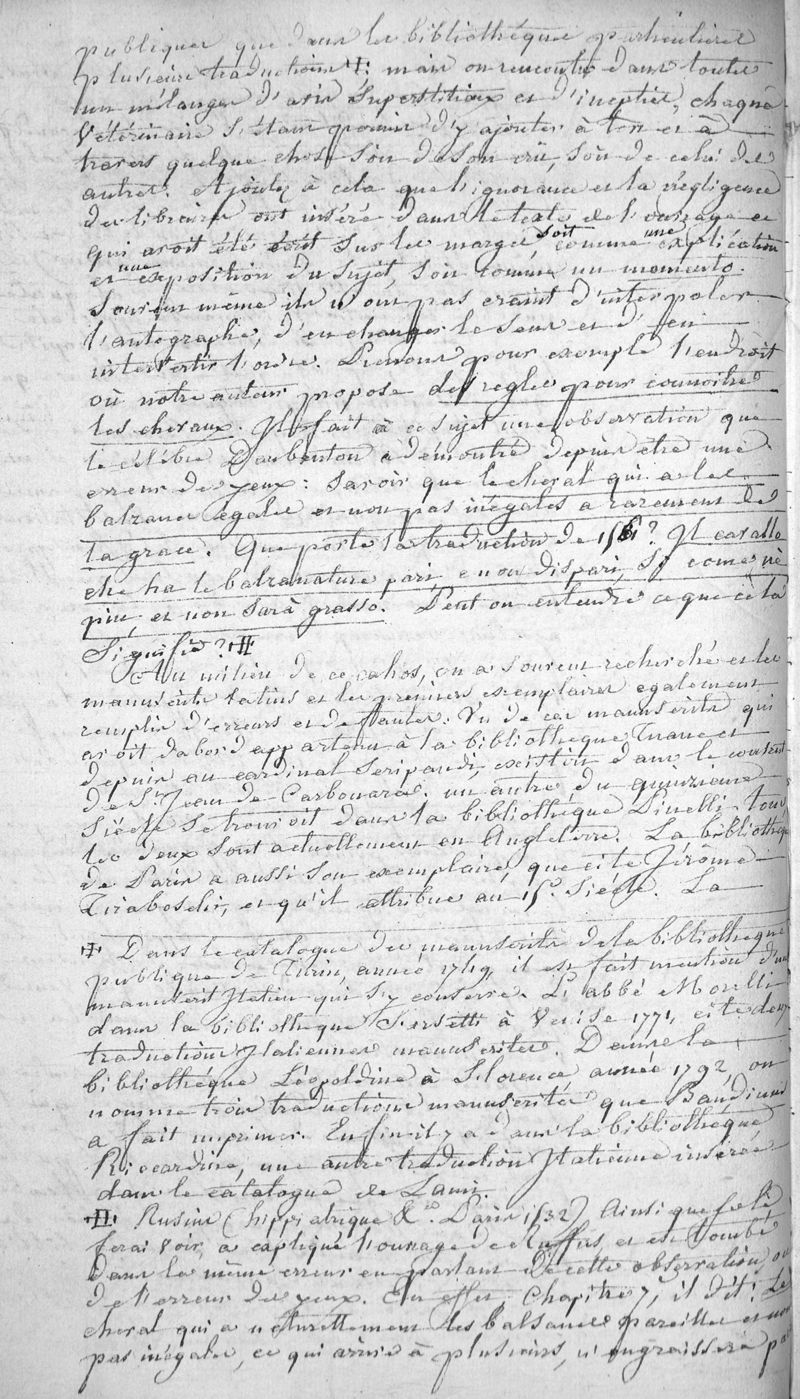 publiques que dans les bibliothéques particulieres
plusieurs traductions ‡: mais on rencontre dans toutes
un mélange d'avis superstitieux et d'inepties, chaque
Vétérinaire s'étant permis d'y ajouter à tort et à
travers quelque chose soit de son crû, soit de celui des
autres. Ajoutez à cela que l'ignorance et la négligence
des libraires ont inséré dans le texte de l'ouvrage ce
qui avoit été écrit sur les marges, soit comme une explication
et une exposition du sujet, soit comme un momento.
Souvent même ils n'ont pas craint d'interpoler
l'autographe, d'en changer le sens et d'en
intervertir l'ordre. Prenons pour exemple l'endroit
où notre auteur propose des regles pour connoitre
les chevaux. Il fait à ce sujet une observation que
le célébre Daubenton a démontré depuis être une
erreur de yeux: savoir que le cheval qui a les
balzanes égales et non pas inégales a rarement de
la grace. Que porte la traduction de 1561? Il cavallo
che ha le balzanature pari, e non dispari, si come nè
piu, et non sarà grasso. Peut on entendre ce que cela
Signifie? ‡‡
Au milieu de ce cahos, on a souvent recherché et les
manuscrits latins et les premiers exemplaires également
remplis d'erreurs et de fautes. Un de ces manuscrits qui
avoit d'abord appartenu à la bibliothéque Truane et
depuis au cardinal Seripandi, existoit dans le couvent
de St. Jean de Carbonara. un autre du quinzieme
Siécle se trouvoit dans la bibliothéque Pinelli. tous
les deux sont actuellement en Angleterre. La bibliothéque
de Paris a aussi son exemplaire, que cite Jérôme
Tiraboschi, et qu'il attribue au 15e. siécle. La
‡ Dans le catalogue des manuscrits de la bibliothéque
publique de Turin, année 1749, il est fait mention d'un
manuscrit Italien qui s'y conserve. L'abbé Morelli
dans la bibliothéque Farsetti à Venise 1771, cite deux
traductions Italiennes manuscrites. Dans la
bibliothéque Léopoldine à Florence année 1792, on
nomme trois traductions manuscrites que Bandinus
a fait imprimer. Enfin il y a dans la bibliothéque
Riccardine, une autre traduction Italienne insérée
dans le catalogue de Lami.
‡‡ Rusius (hippiatrique &a. Paris 1532) Ainsi que je le
ferai voir, a expliqué l'ouvrage de Ruffus, et est tombé
dans la même erreur en parlant de cette observation, ou
de l'erreur des yeux. En effet, Chapitre 7, il dit: Le
cheval qui a naturellement les balsanes pareilles et non
pas inégales, ce qui arrive à plusieurs, n'engraissera pas